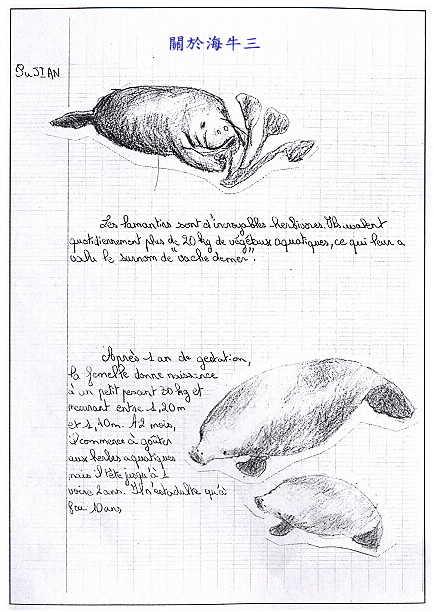 關於海牛三
SuJIAN
Les lamantins sont d'incroyables herbivores. Ils avalent
quotidiennement plus de 20 kg de végétaux aquatiques, ce qui leur a
valu le surnom de "vache de mer".
Après 1 an de gestation,
la femelle donne naissance
à un petit pesant 30 kg et
mesurant entre 1,20m
et 1,40m. A 2 mois,
il commence à goûter
aux herbes aquatiques
mais il tête jusqu'à 1
voire 2 ans. Il n'est adulte qu'à
10 ans